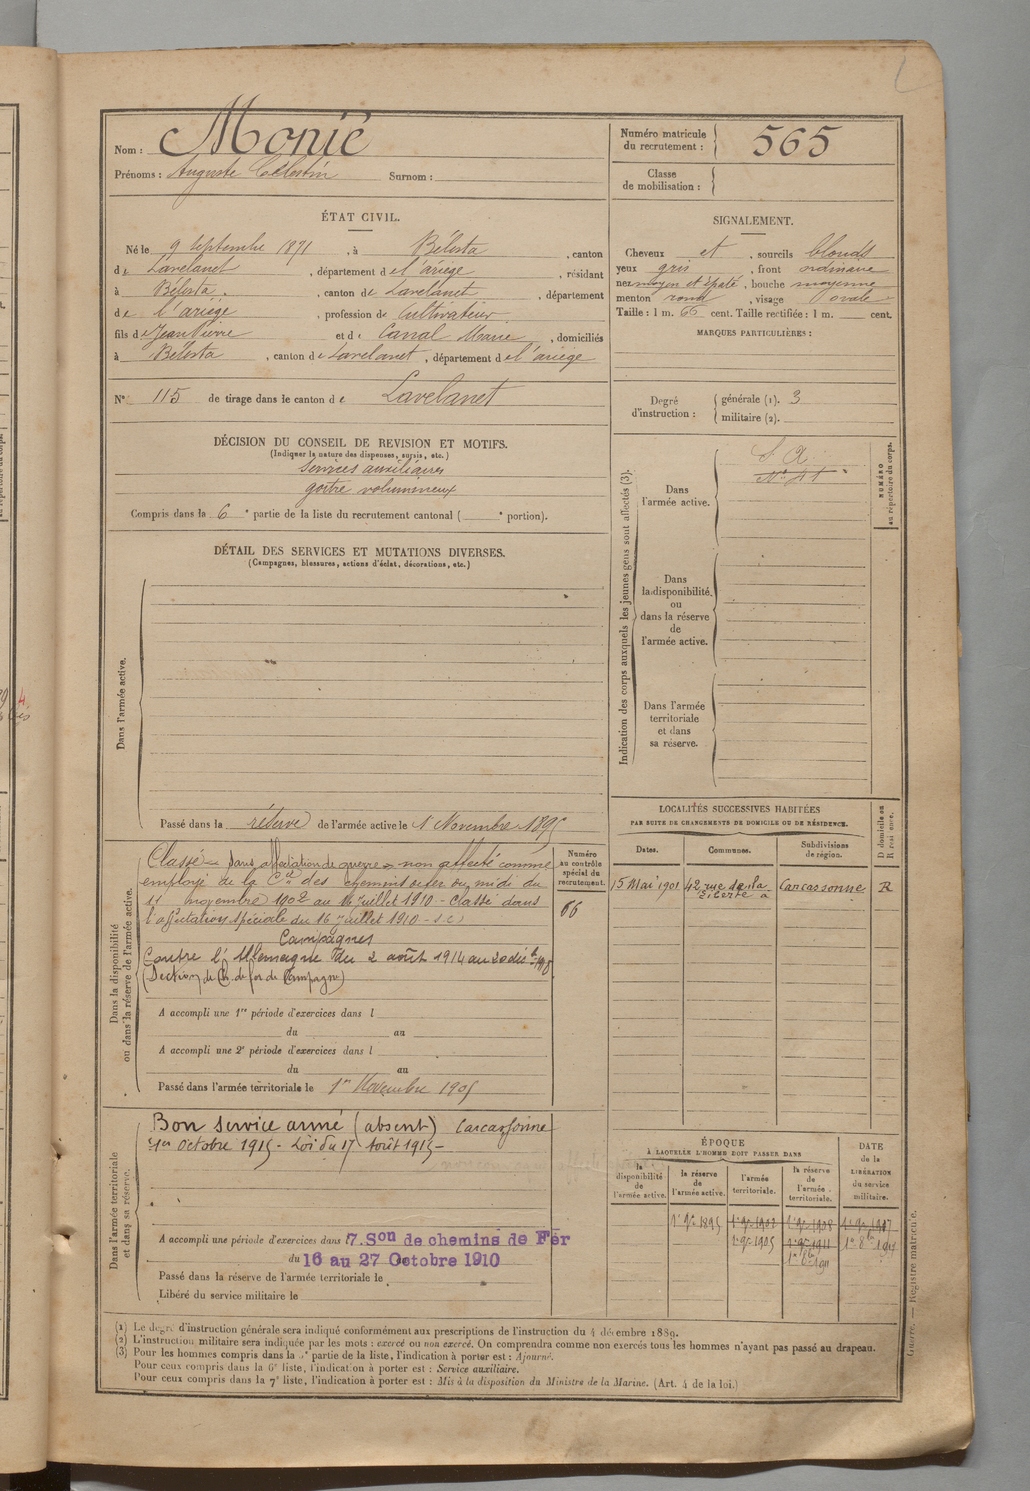 Nom : Monié
Prénoms : Auguste Célestin Surnom :
Numéro matricule du recrutement : 565
Classe de mobilisation :
ÉTAT CIVIL.
Né le 9 Septembre 1871, à Bélesta, canton
de Lavelanet, département de l'ariège, résidant
à Bélesta, canton de Lavelanet, département
de l'ariège, profession de cultivateur
fils de Jean Pierre et de Canal Marie, domiciliés
à Bélesta, canton de Lavelanet, département de l'ariège
N° 115 de tirage dans le canton de Lavelanet
SIGNALEMENT.
Cheveux et, sourcils blonds
yeux gris, front ordinaire
nez moyen et épaté, bouche moyenne
menton rond, visage ovale
Taille : 1 m. 66 cent. Taille rectifiée : 1 m. cent.
MARQUES PARTICULIÈRES :
Degré d'instruction : générale (1). 3
militaire (2).
DÉCISION DU CONSEIL DE REVISION ET MOTIFS.
(Indiquer la nature des dispenses, sursis, etc.)
Services auxiliaires
goître volumineux
Compris dans la 6e partie de la liste du recrutement cantonal ( e portion).
DÉTAIL DES SERVICES ET MUTATIONS DIVERSES.
(Campagnes, blessures, actions d'éclat, décorations, etc.)
Dans l'armée active.
Passé dans la réserve de l'armée active le 1 Novembre 1895
Indication des corps auxquels les jeunes gens sont affectés (3).
Dans l'armée active.
S A
N° 41
NUMÉRO au répertoire du corps.
Dans la disponibilité ou dans la réserve de l'armée active.
Dans l'armée territoriale et dans sa réserve.
Dans la disponibilité ou dans la réserve de l'armée active.
Classé sans affectation de guerre non affecté comme
employé de la Cie des chemins de fer du midi du
11 novembre 1902 au 16 juillet 1910 - Classé dans
l'affectation spéciale du 16 juillet 1910 - S.C.
Campagnes
Contre l'Allemagne du 2 août 1914 au 20 déc. 1918
(Section de Ch. de fer de Campagne)
Numéro au contrôle spécial du recrutement.
66
A accompli une 1re période d'exercices dans l
du au
A accompli une 2e période d'exercices dans l
du au
Passé dans l'armée territoriale le 1er Novembre 1905
LOCALITÉS SUCCESSIVES HABITÉES
PAR SUITE DE CHANGEMENTS DE DOMICILE OU DE RÉSIDENCE.
Dates. Communes. Subdivisions de région. D domicile ou R résidence.
15 Mai 1901 42 rue de la liberté à Carcassonne R
Dans l'armée territoriale et dans sa réserve.
Bon service armé (absent) Carcassonne
1er Octobre 1915 - Loi du 17 Août 1915 -
A accompli une période d'exercices dans l 7. Son de chemins de Fer
du 16 au 27 Octobre 1910
Passé dans la réserve de l'armée territoriale le
Libéré du service militaire le
ÉPOQUE
À LAQUELLE L'HOMME DOIT PASSER DANS
la disponibilité de l'armée active. la réserve de l'armée active. l'armée territoriale. la réserve de l'armée territoriale. DATE de la LIBÉRATION du service militaire.
1er 9bre 1895 1er 9bre 1902 1er 9bre 1908 1er 9bre 1917
1er 9bre 1905 1er 9bre 1911 1er 8bre 1917
1er 8bre 1911
(1) Le degré d'instruction générale sera indiqué conformément aux prescriptions de l'instruction du 4 décembre 1889.
(2) L'instruction militaire sera indiquée par les mots : exercé ou non exercé. On comprendra comme non exercés tous les hommes n'ayant pas passé au drapeau.
(3) Pour les hommes compris dans la 5e partie de la liste, l'indication à porter est : Ajourné.
Pour ceux compris dans la 6e liste, l'indication à porter est : Service auxiliaire.
Pour ceux compris dans la 7e liste, l'indication à porter est : Mis à la disposition du Ministre de la Marine. (Art. 4 de la loi.)
Guerre. — Registre matricule.